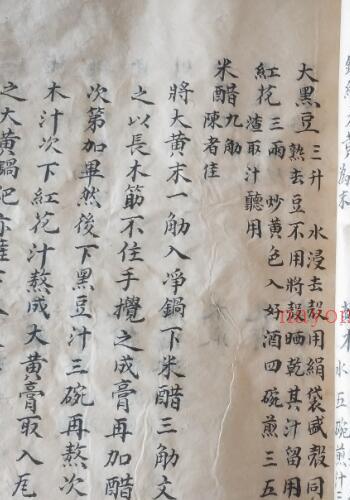 水五碗煎汁
大黑豆三升 水浸去殼用絹袋盛殼同
熟去豆不用將殼晒乾其汁留用
紅花三兩 炒黃色入好酒四碗煎三五
渣取汁聽用
米醋九觔 陳者佳
將大黃末一觔入淨鍋下米醋三觔文
之以長木筋不住手攪之成膏再加醋
次第加畢然後下黑豆汁三碗再熬次
木汁次下紅花汁熬成大黃膏取入瓦
之大黃鍋粑亦佳
nayon